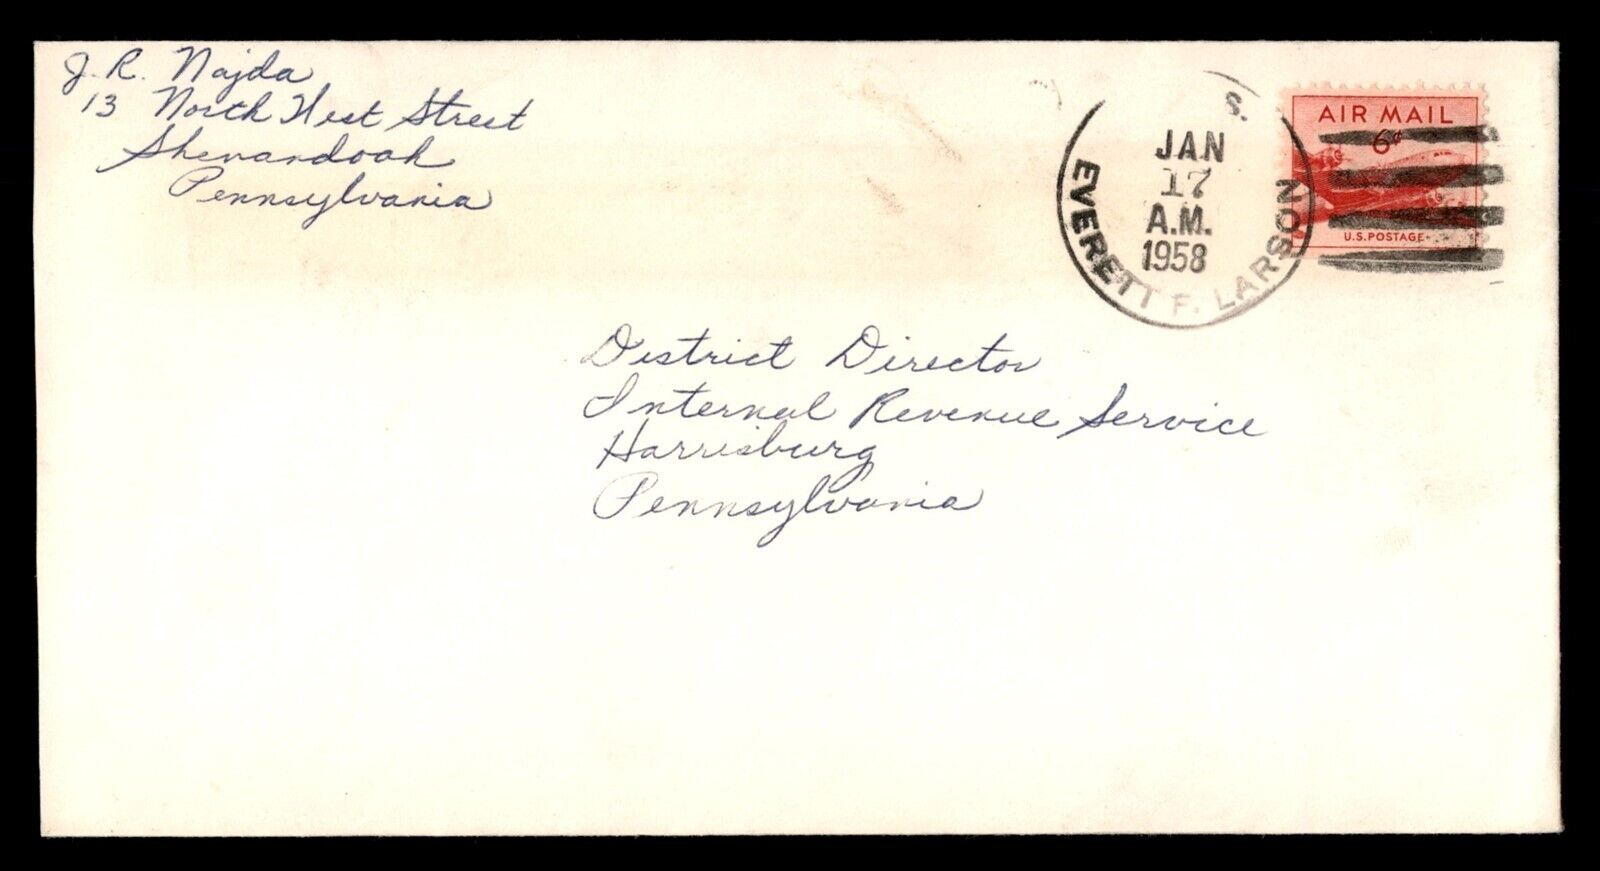 J. R. Najda
13 North West Street
Shenandoah
Pennsylvania
S.
JAN
17
A.M.
1958
EVERETT F. LARSON
AIR MAIL
6¢
U.S. POSTAGE
District Director
Internal Revenue Service
Harrisburg
Pennsylvania